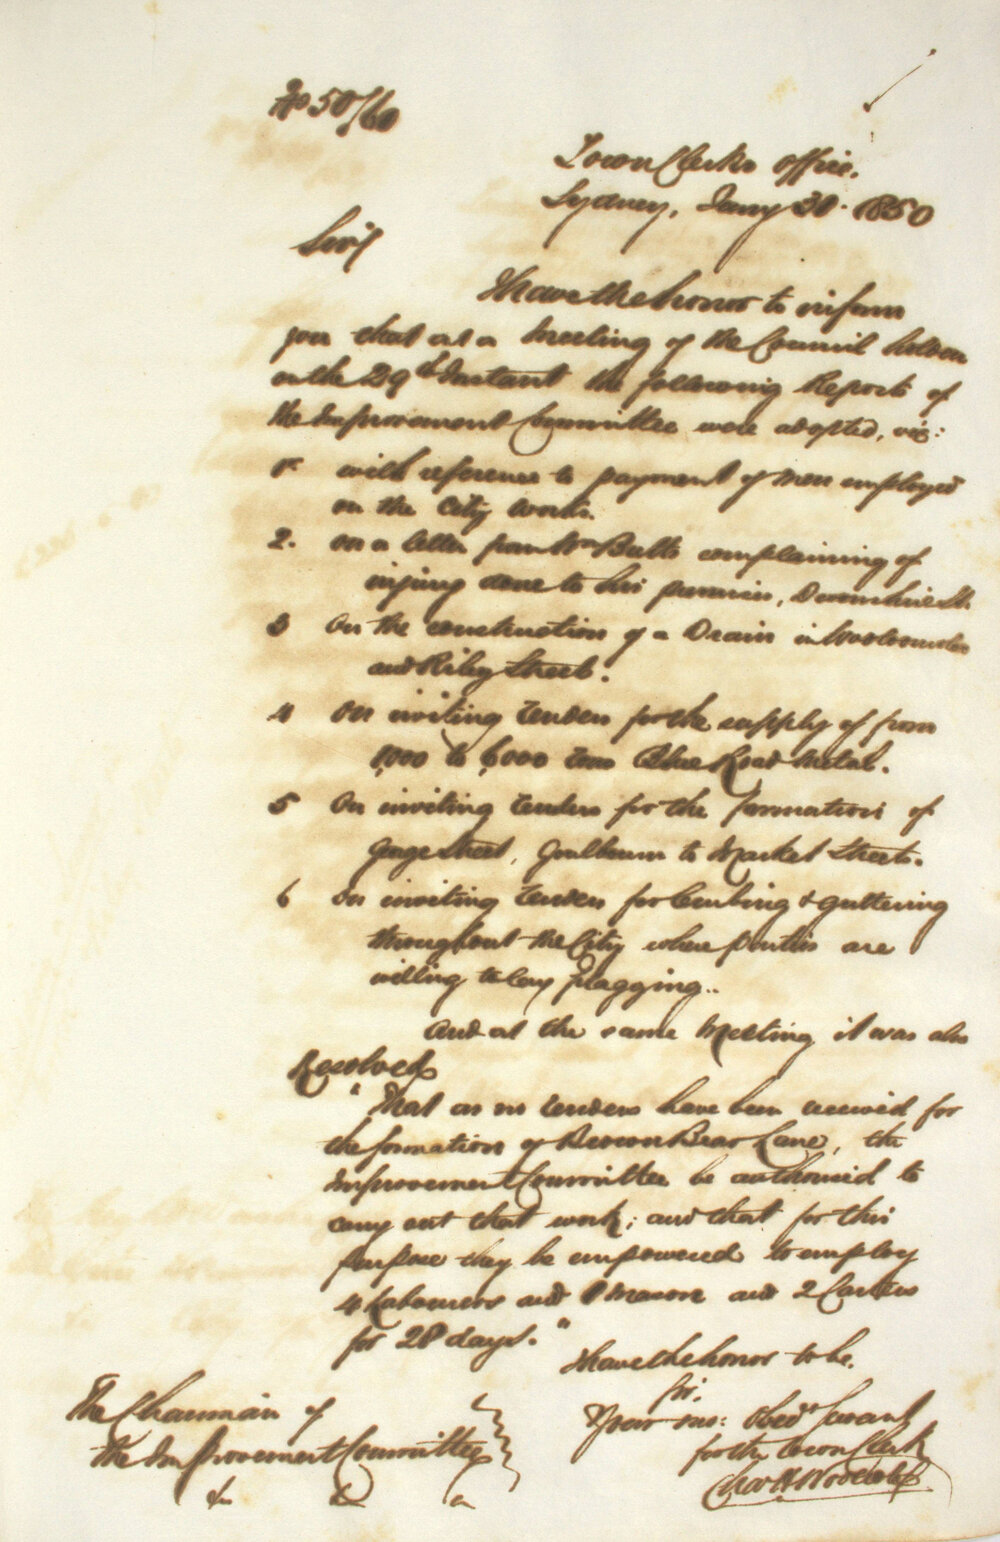 No 50/60
Town Clerks Office.
Sydney, Jany 30. 1850
Sir,
I have the honor to inform
you that at a Meeting of the Council holden
on the 29th Instant the following Reports of
the Improvement Committee were adopted, viz:
1 with reference to payment of men employed
on the City works.
2. on a letter from Wm Butts complaining of
injury done to his premises, Devonshire St.
3 On the construction of a Drain in Woolloomooloo
and Riley Street.
4 On inviting Tenders for the supply of from
1,000 to 6,000 tons Blue Road Metal.
5 On inviting Tenders for the formation of
George Street, Goulburn to Market Streets.
6 On inviting Tenders for Curbing & guttering
throughout the City where parties are
willing to lay flagging..
And at the same Meeting it was also
Resolved
"That as no tenders have been received for
the formation of Brown Bear Lane, the
Improvement Committee be authorised to
carry out that work; and that for this
purpose they be empowered to employ
4 Labourers and 1 mason and 2 Carters
for 28 days."
I have the honor to be.
Sir.
Your mo: Obedt Servant
for the Town Clerk
Chas H Woolcott
The Chairman of
the Improvement Committee
&c &c &c